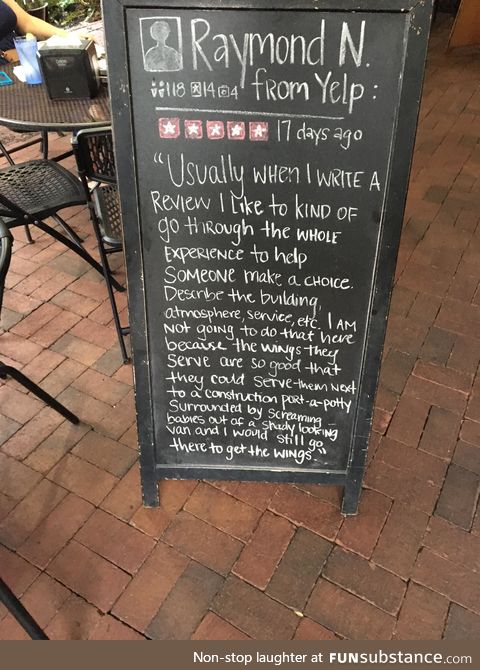 Raymond N.
118 14 4 from Yelp:
17 days ago
"Usually when I write a
review I like to kind of
go through the whole
experience to help
someone make a choice.
Describe the building,
atmosphere, service, etc. I am
not going to do that here
because the wings they
serve are so good that
they could serve them next
to a construction port-a-potty
surrounded by screaming
babies out of a shady looking
van and I would still go
there to get the wings."
Non-stop laughter at FUNsubstance.com